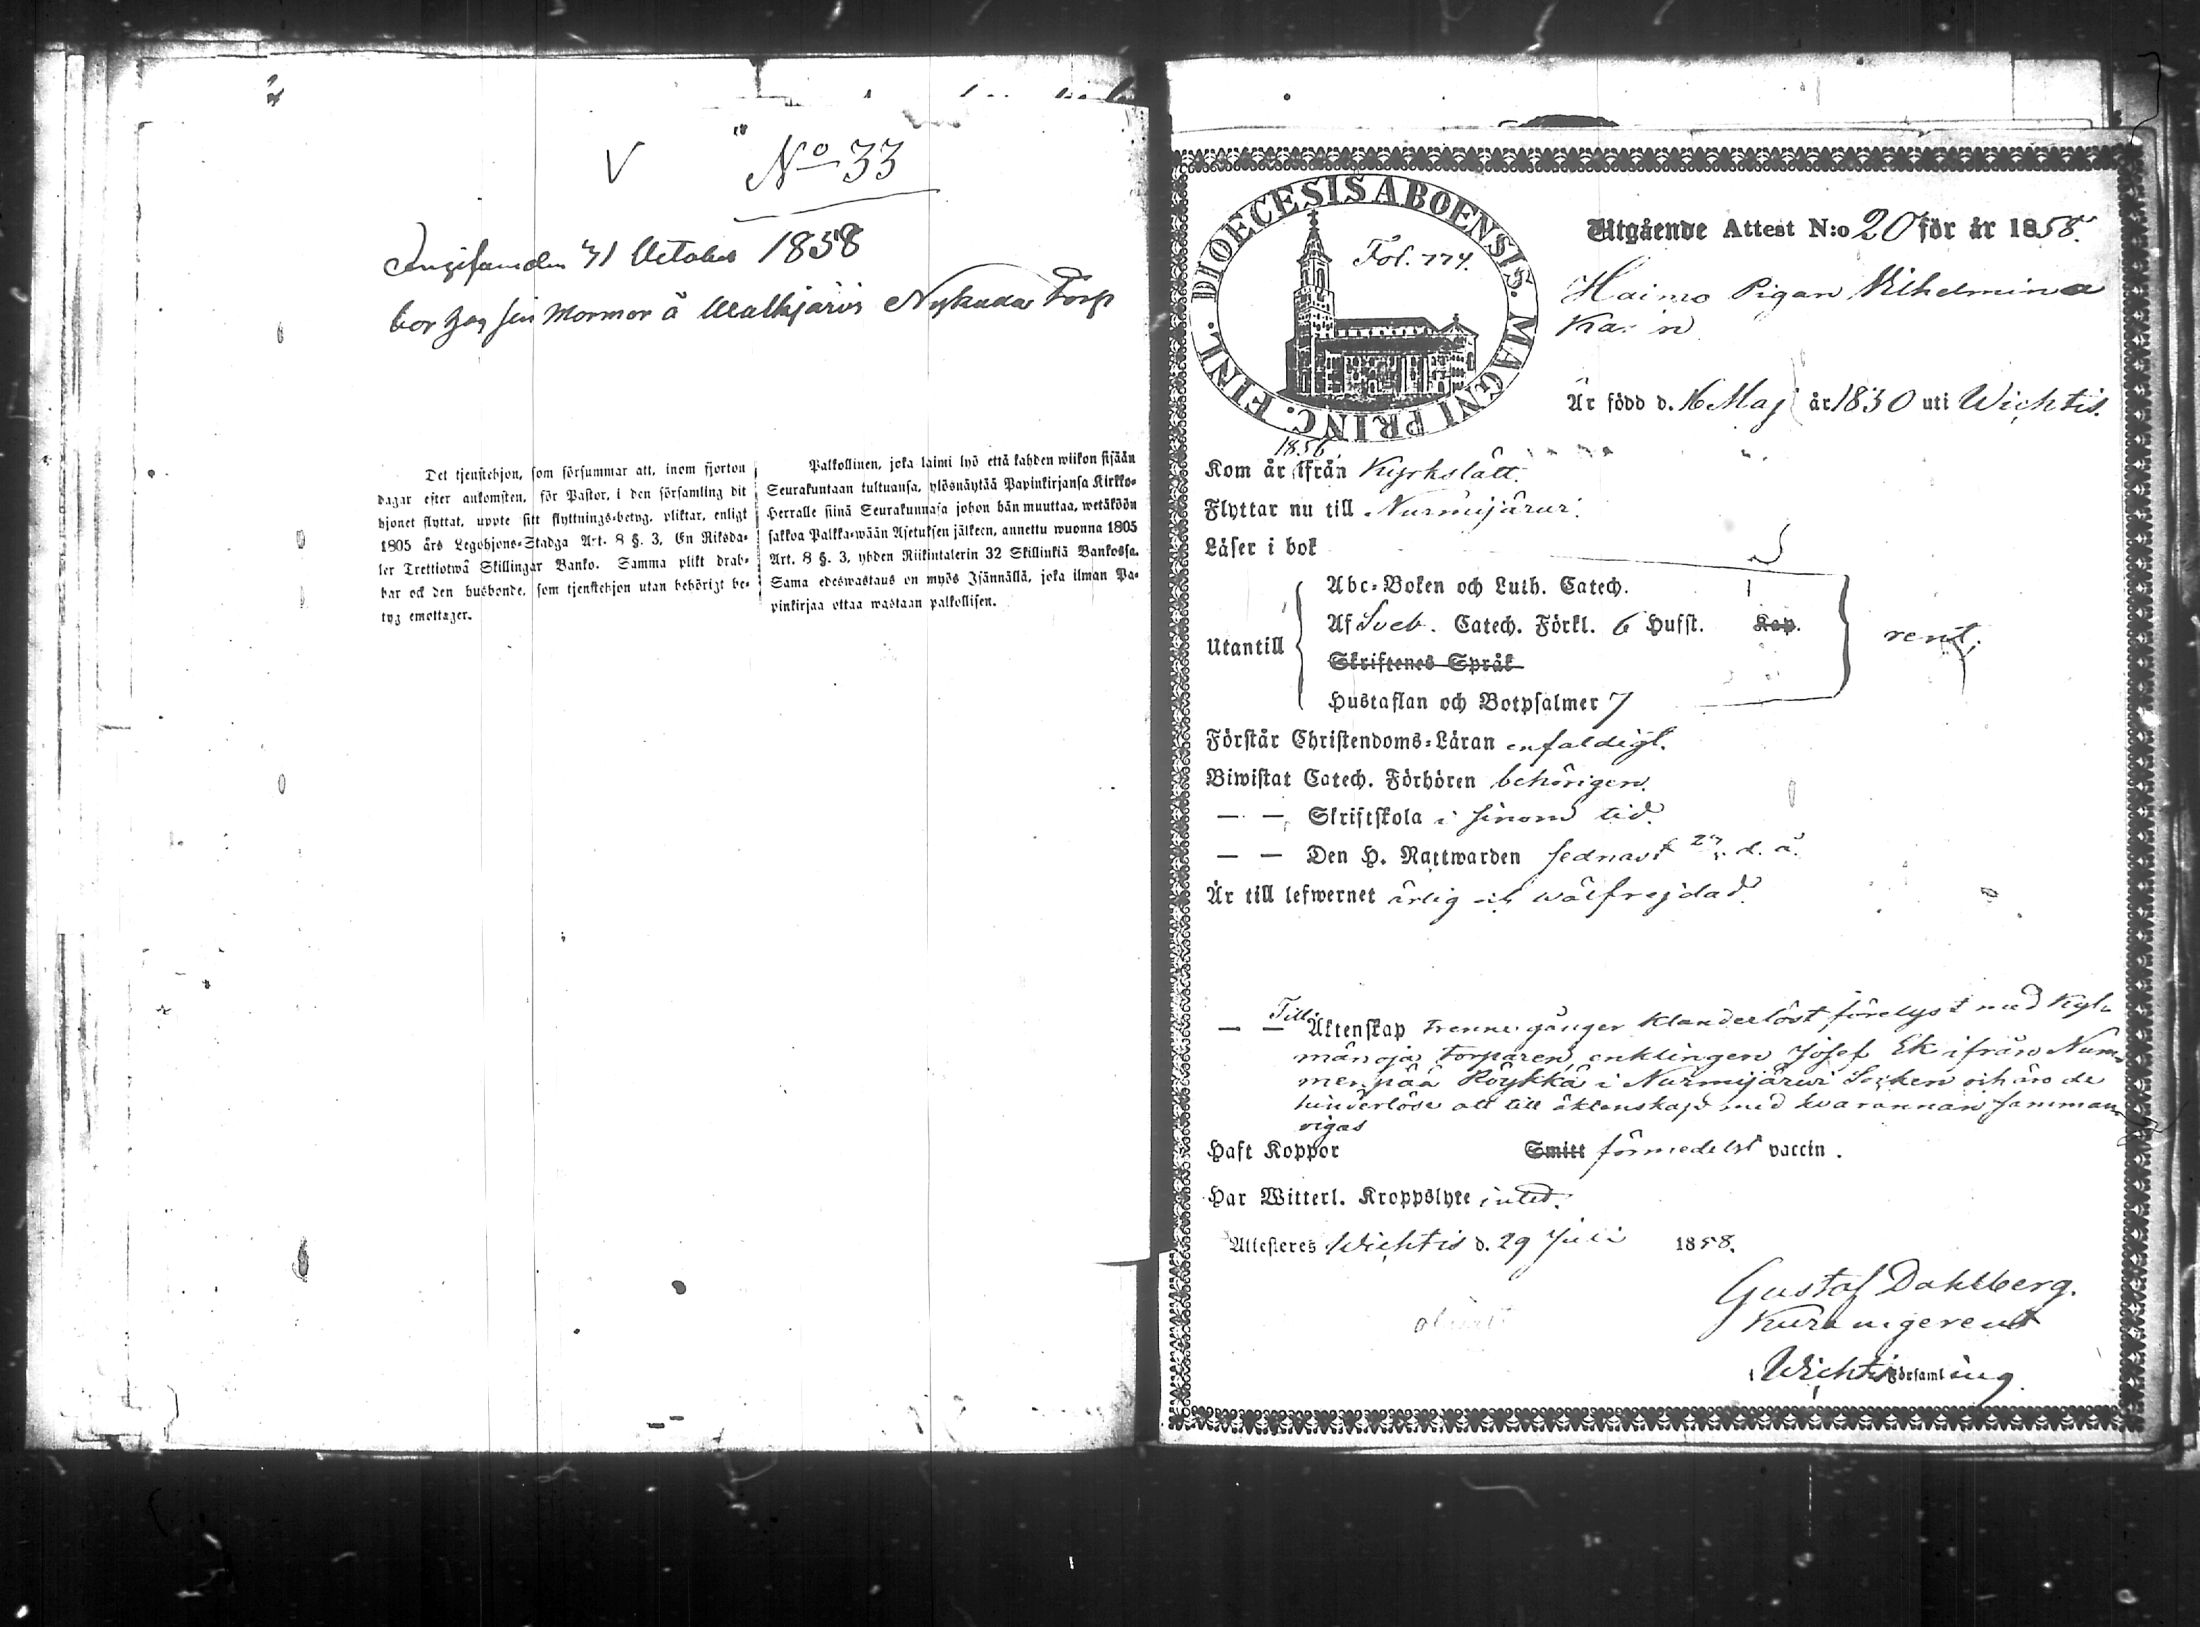 V
No 33
den 31 October 1858
bor hos sin Mormor å Torp
Det tjenstehjon, som försummar att, inom fjorton
dagar efter ankomsten, för Pastor, i den församling dit
hjonet flyttat, uppte sitt flyttnings-betyg, pliktar, enligt
1805 års Legohjons-Stadga Art. 8 §. 3, En Riksda-
ler Trettiotwå Skillingar Banko. Samma plikt drab-
bar ock den husbonde, som tjenstehjon utan behörigt be-
tyg emottager.
Palkollinen, joka laimi lyö että kahden wiikon sisään
Seurakuntaan tultuansa, ylösnäytää Papinkirjansa Kirkko-
Herralle siinä Seurakunnasa johon hän muuttaa, wetäköön
sakkoa Palkka-wään Asetuksen jälkeen, annettu wuonna 1805
Art. 8 §. 3, yhden Riikintalerin 32 Skillinkiä Bankossa.
Sama edeswastaus on myös Isännällä, joka ilman Pa-
pinkirjaa ottaa wastaan palkollisen.
DIOECESIS ABOENSIS. MAGNI PRINC. FINL.
Fol. 774.
Utgående Attest N:o 20 för år 1858.
Haimo Pigan Vilhelmina
Ka in
Är född d. 16 Maj år 1830 uti Wichtis.
1856
Kom år ifrån Kyrkslätt.
Flyttar nu till Nurmijärwi.
Läser i bok
Utantill
Abc-Boken och Luth. Catech.
Af Sveb. Catech. Förkl. 6 Hufst. Kap.
Skriftenes Språk
Hustaflan och Botpsalmer 7
rent.
Förstår Christendoms-Läran enfaldigt.
Biwistat Catech. Förhören behörigen.
— — Skriftskola i sinom tid.
— — Den H. Nattwarden sednast d. å.
Är till lefwernet ärlig och wälfrejdad.
Till
— — Äktenskap trenne gånger klanderlöst förelyst med Kyl-
mänoja torparen, enklingen Josef Ek ifrån Num-
menpää Röykkä i Nurmijärwi Socken och äro de
hinderlöse att till äktenskap med hvarannan samman-
vigas
Haft Koppor Smitt förmedelst vaccin.
Har Witterl. Kroppslyte intet.
Attesteres Wichtis d. 29 Juli 1858.
Gustaf Dahlberg.
Kura ungerent
i Wichtis Församling